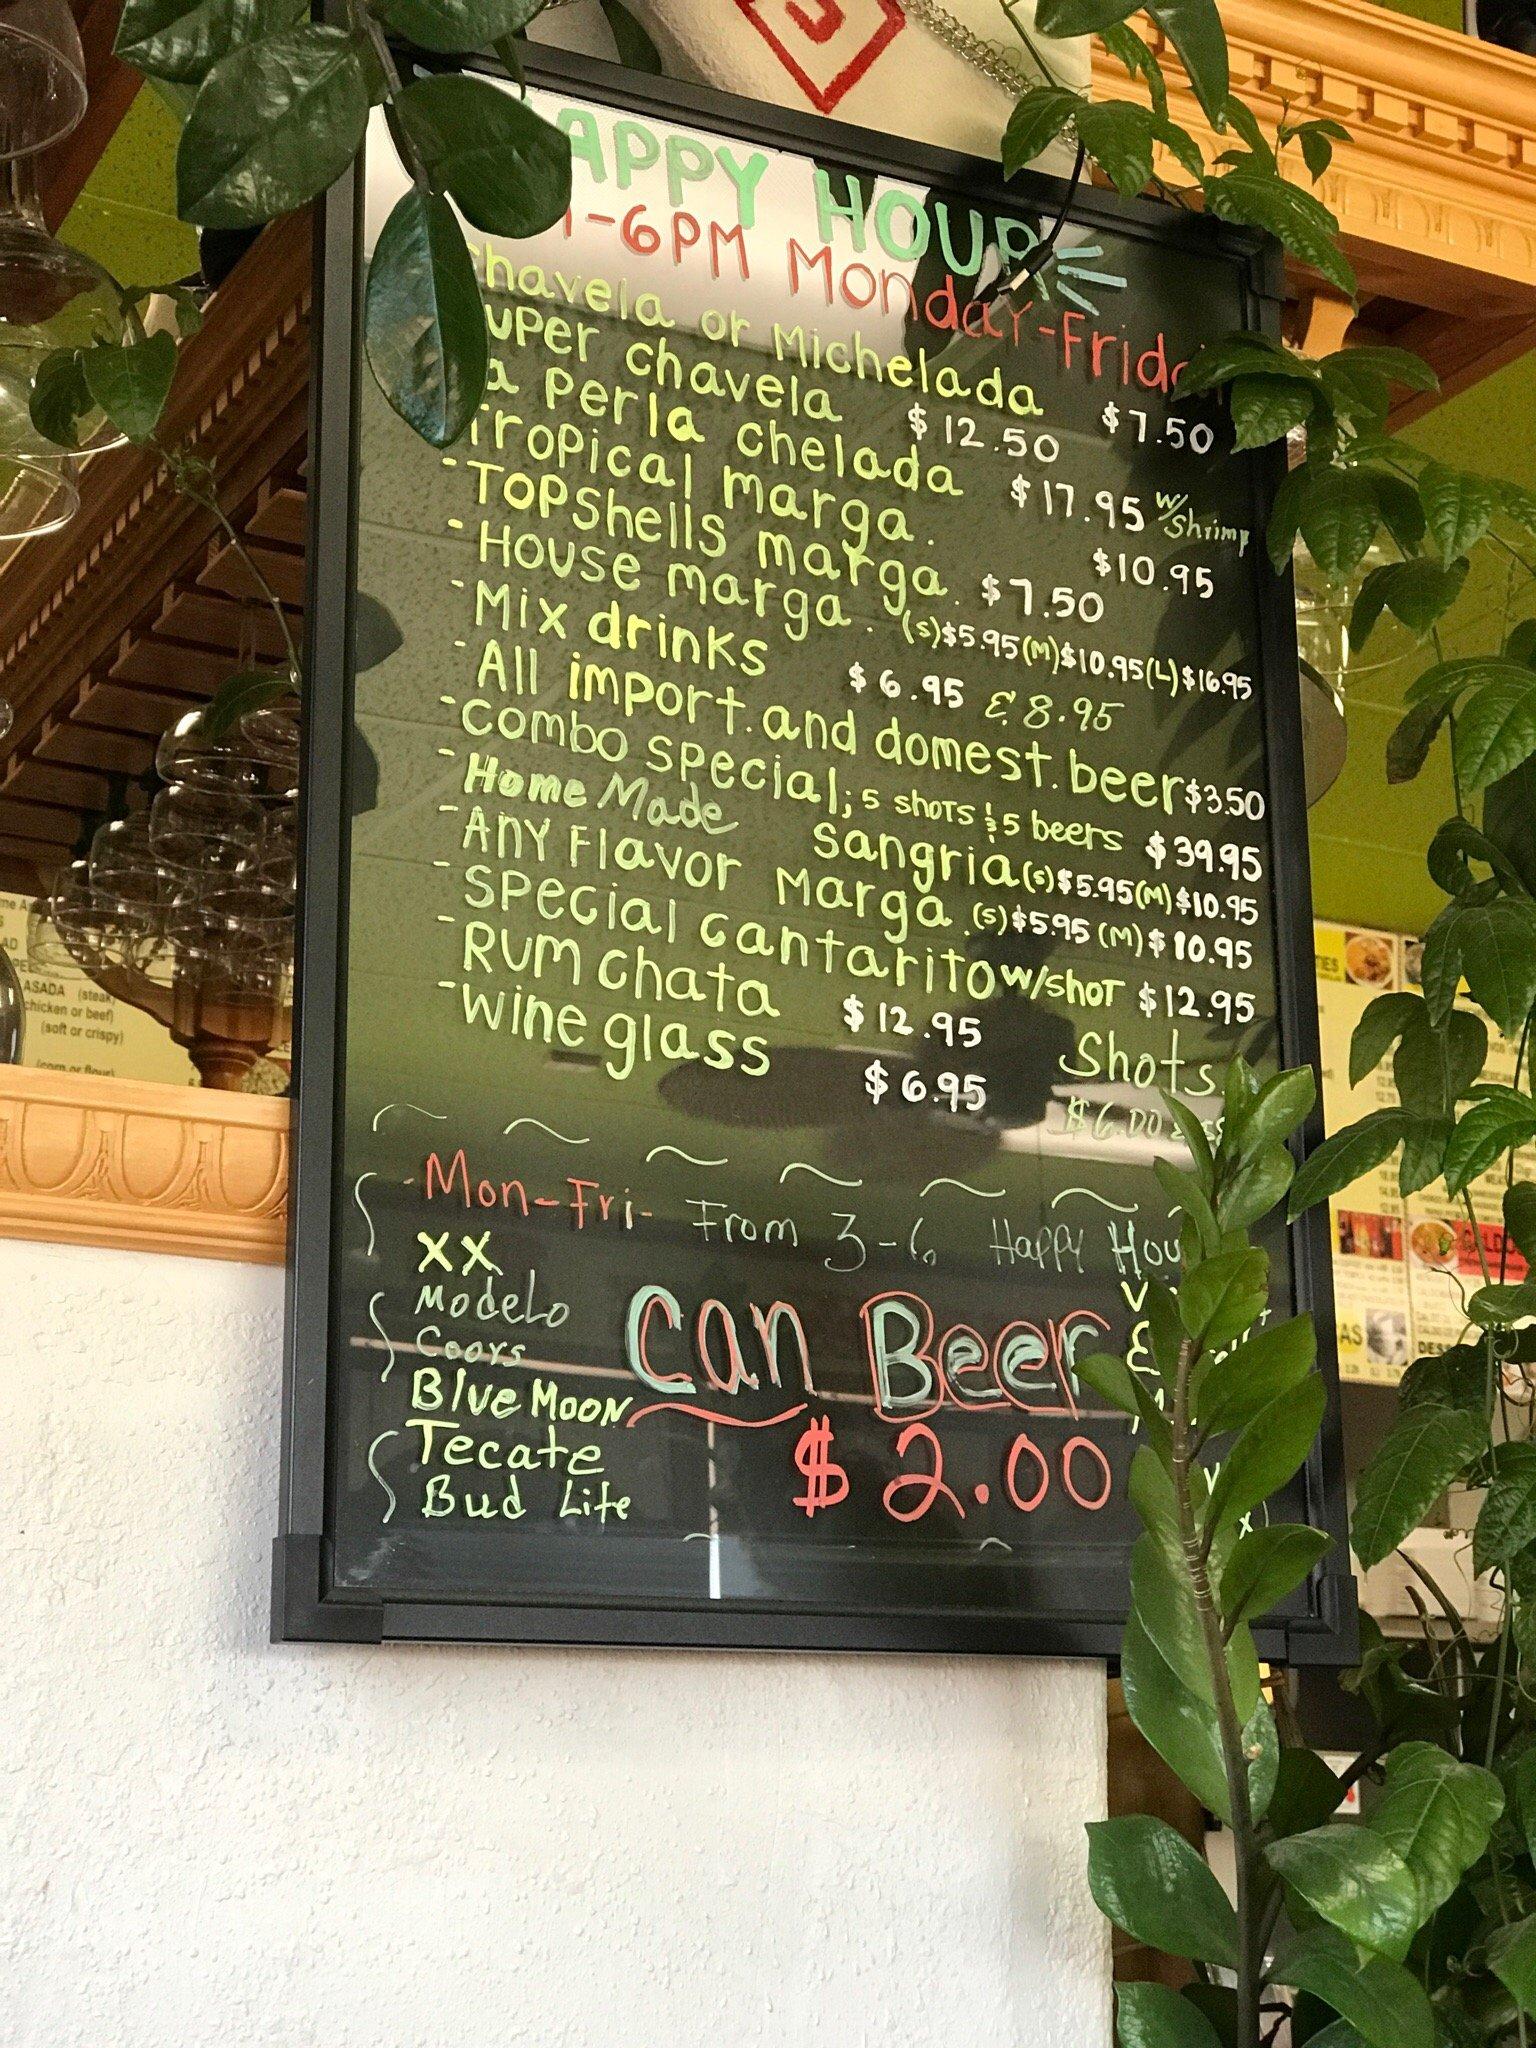 HAPPY HOUR
-6PM Monday-Friday
Chavela or Michelada $7.50
Super chavela $12.50
La perla chelada $17.95 w/shrimp
Tropical marga. $10.95
-Topshells marga. $7.50
-House marga. (S)$5.95(M)$10.95(L)$16.95
-Mix drinks $6.95 & 8.95
-All import. and domest. beer $3.50
-combo special; 5 shots & 5 beers $39.95
-Home Made Sangria (S)$5.95(M)$10.95
-ANY Flavor Marga. (S)$5.95 (M)$10.95
-Special cantarito w/shot $12.95
-Rum chata $12.95
-wine glass $6.95
Shots
$6.00
-Mon-Fri- From 3-6 Happy Hou
XX
Modelo
Coors
Blue Moon
Tecate
Bud Lite
Can Beer
$2.00
ASADA (steak)
chicken or beef)
(soft or crispy)
(corn or flour)